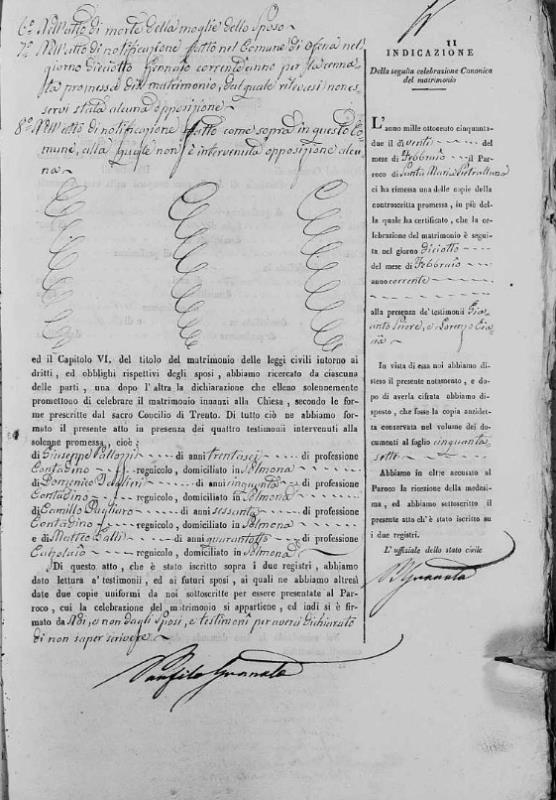 6.° Nell'atto di morte della moglie dello Sposo
7.° Nell'atto di notificazione fatto nel Comune di Ofena nel
giorno diciotto Gennaio corrente anno per
promessa di matrimonio, dal quale rilevasi non es
servi stata alcuna opposizione
8.° Nell'atto di notificazione fatto come sopra in questo Co
mune, alla quale non è intervenuta opposizione alcu
na
ed il Capitolo VI, del titolo del matrimonio delle leggi civili intorno ai
dritti, ed obblighi rispettivi degli sposi, abbiamo ricercato da ciascuna
delle parti, una dopo l'altra la dichiarazione che elleno solennemente
promettono di celebrare il matrimonio innanzi alla Chiesa, secondo le for
me prescritte dal sacro Concilio di Trento. Di tutto ciò ne abbiamo for
mato il presente atto in presenza dei quattro testimonii intervenuti alla
solenne promessa, cioè:
di Giuseppe di anni trentasei di professione
Contadino regnicolo, domiciliato in Solmona
di Domenico di anni cinquanta di professione
Contadino regnicolo, domiciliato in Solmona
di Camillo Pagliaro di anni sessanta di professione
Contadino regnicolo, domiciliato in Solmona
e di Matteo Galli di anni quarantotto di professione
regnicolo, domiciliato in Solmona
Di questo atto, che è stato iscritto sopra i due registri, abbiamo
dato lettura a' testimonii, ed ai futuri sposi, ai quali ne abbiamo altresì
date due copie uniformi da noi sottoscritte per essere presentate al Par-
roco, cui la celebrazione del matrimonio si appartiene, ed indi si è fir-
mato da Noi, e non dagli Sposi, e testimoni per aversi dichiarato
di non saper scrivere
Panfilo Granata
11
INDICAZIONE
Della seguita celebrazione Canonica
del matrimonio
L'anno mille ottocento cinquanta-
due il di venti del
mese di Febbraio il Par-
roco di Santa Maria
ci ha rimessa una delle copie della
controscritta promessa, in piè del-
la quale ha certificato, che la ce-
lebrazione del matrimonio è segui-
ta nel giorno diciotto
del mese di Febbraio
anno corrente
alla presenza de' testimonii
e Lorenzo
In vista di essa noi abbiamo di-
steso il presente notamento, e do-
po di averla cifrata abbiamo di-
sposto, che fosse la copia anzidet-
ta conservata nel volume dei do-
cumenti al foglio cinquanta
sette
Abbiamo in oltre accusato al
Paroco la ricezione della medesi-
ma, ed abbiamo sottoscritto il
presente atto ch'è stato iscritto su
i due registri.
L' uffiziale dello stato civile
P Granata